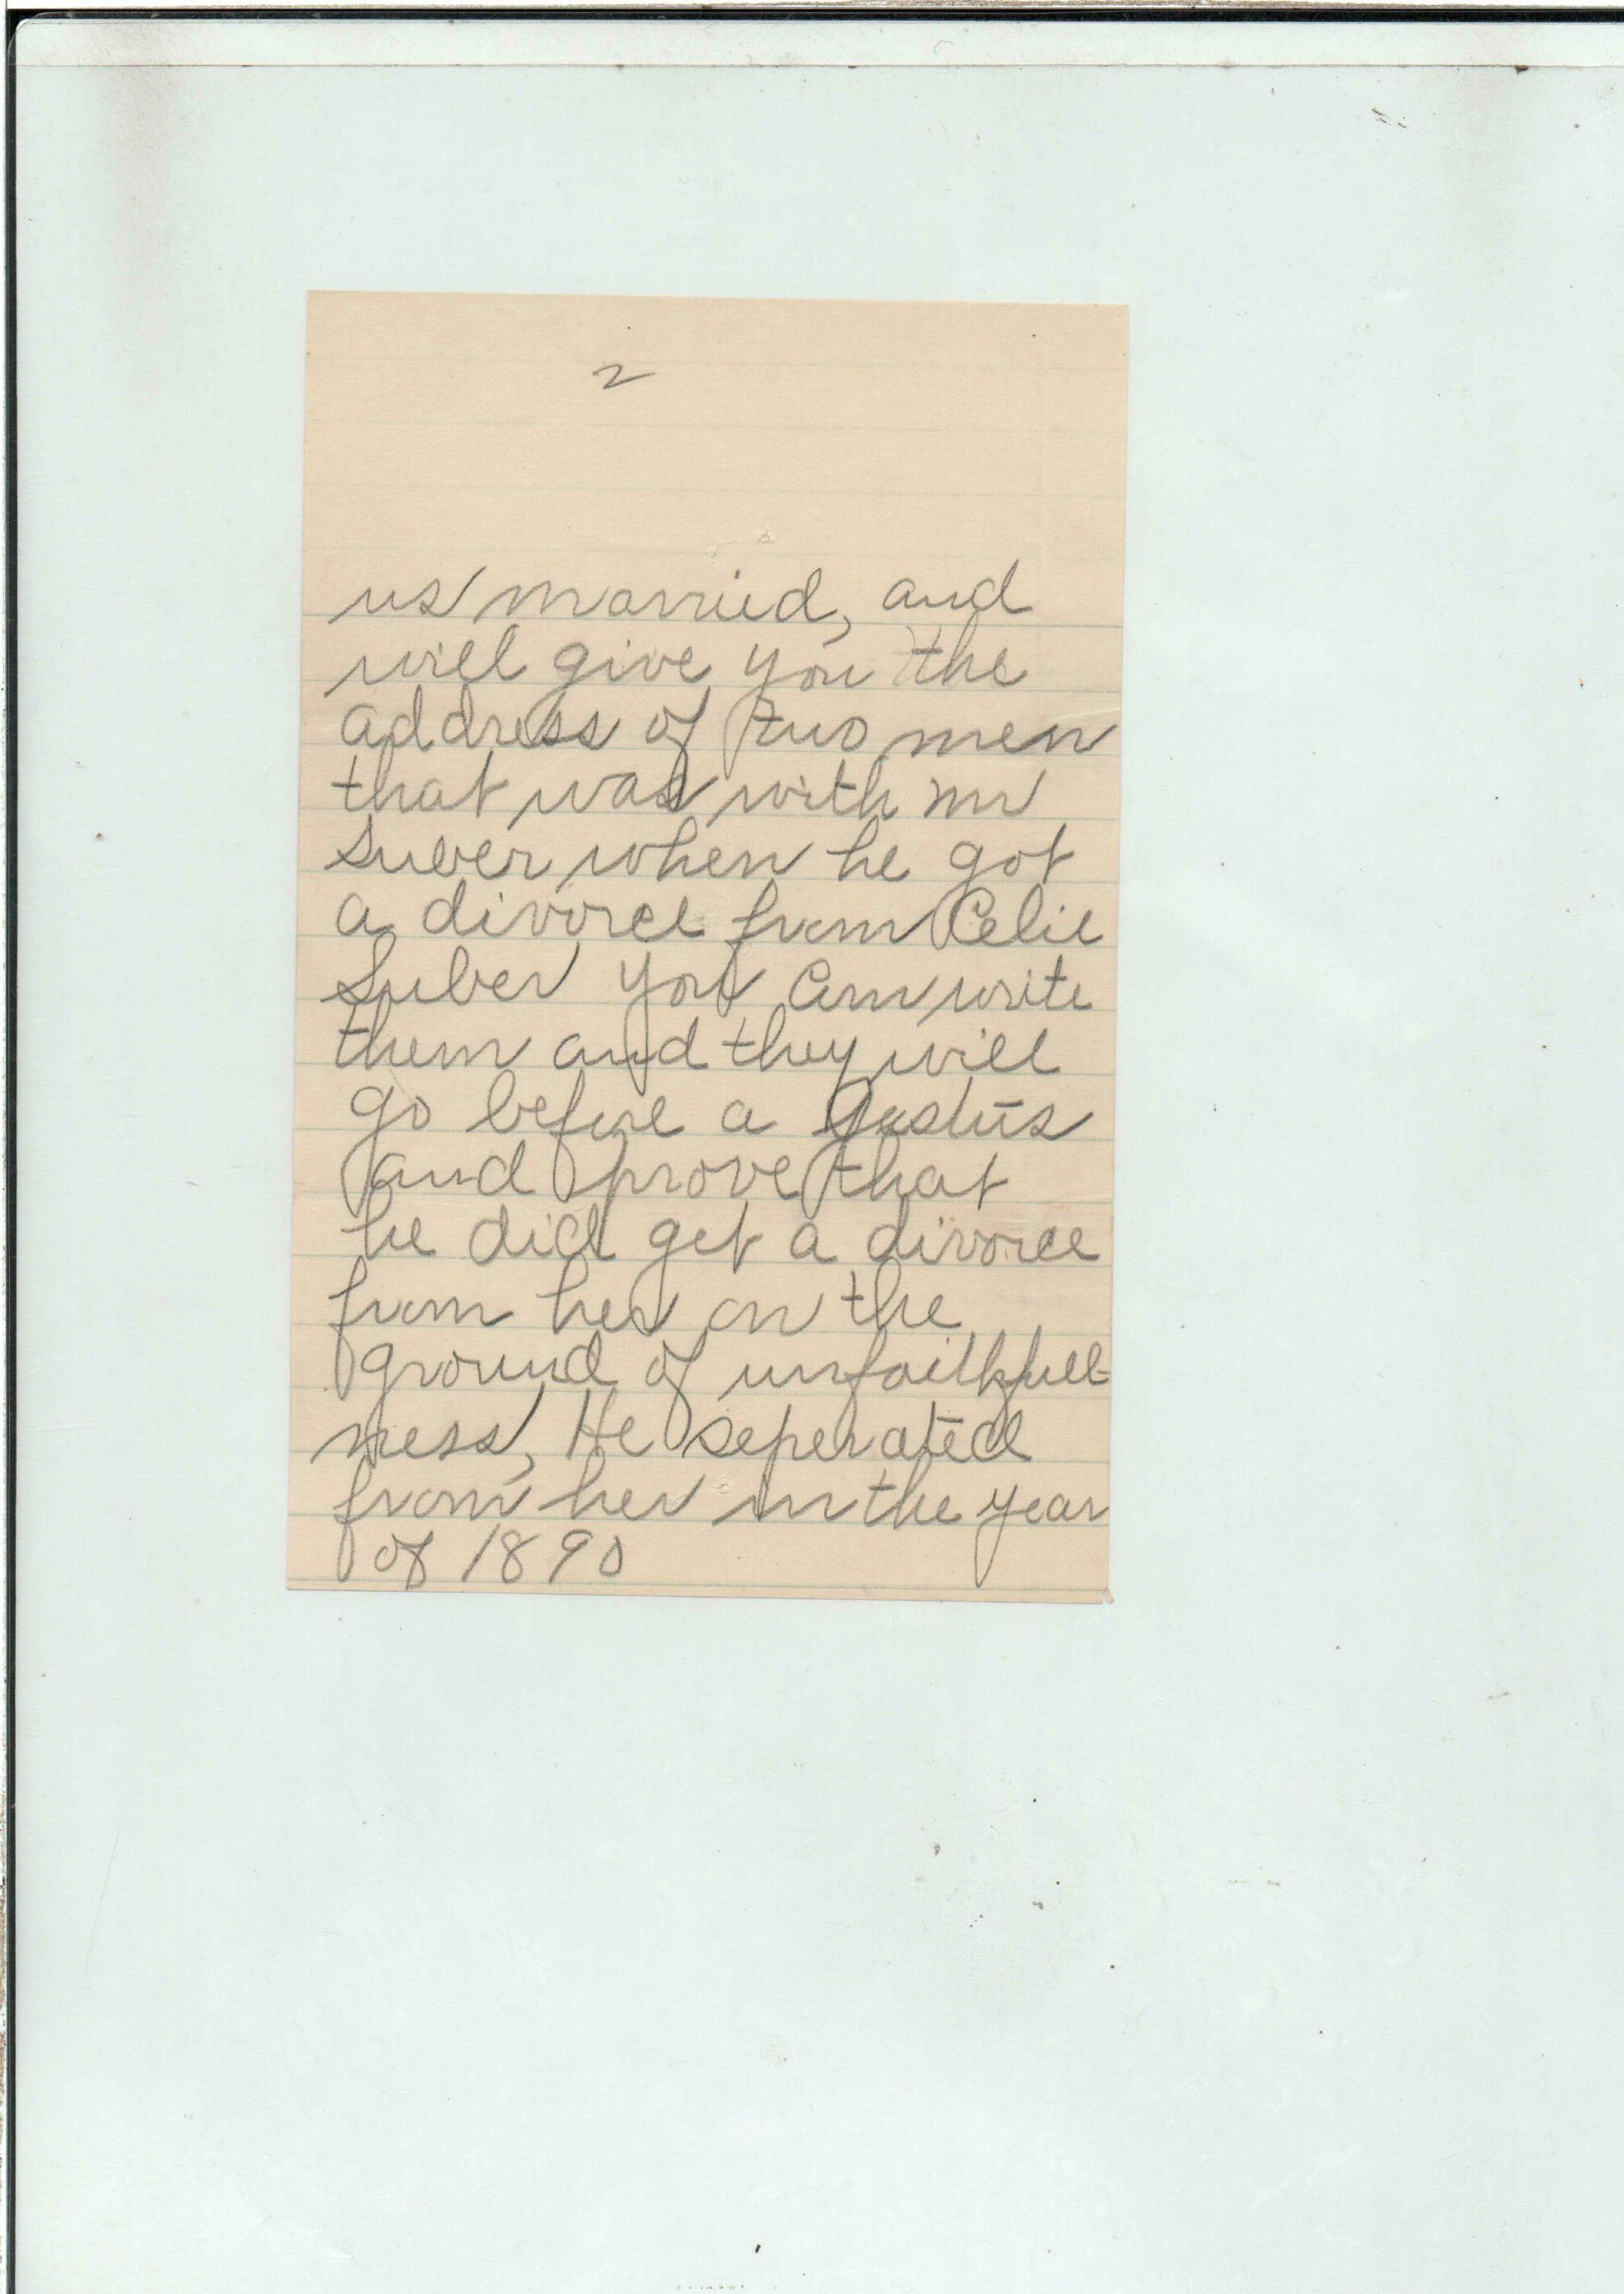 2
us married, and
will give you the
address of two men
that was with mr
Suber when he got
a divorce from Celie
Suber you can write
them and they will
go before a Justis
and prove that
he did get a divorce
from her on the
ground of unfaithfull-
ness, He seperated
from her in the year
of 1890